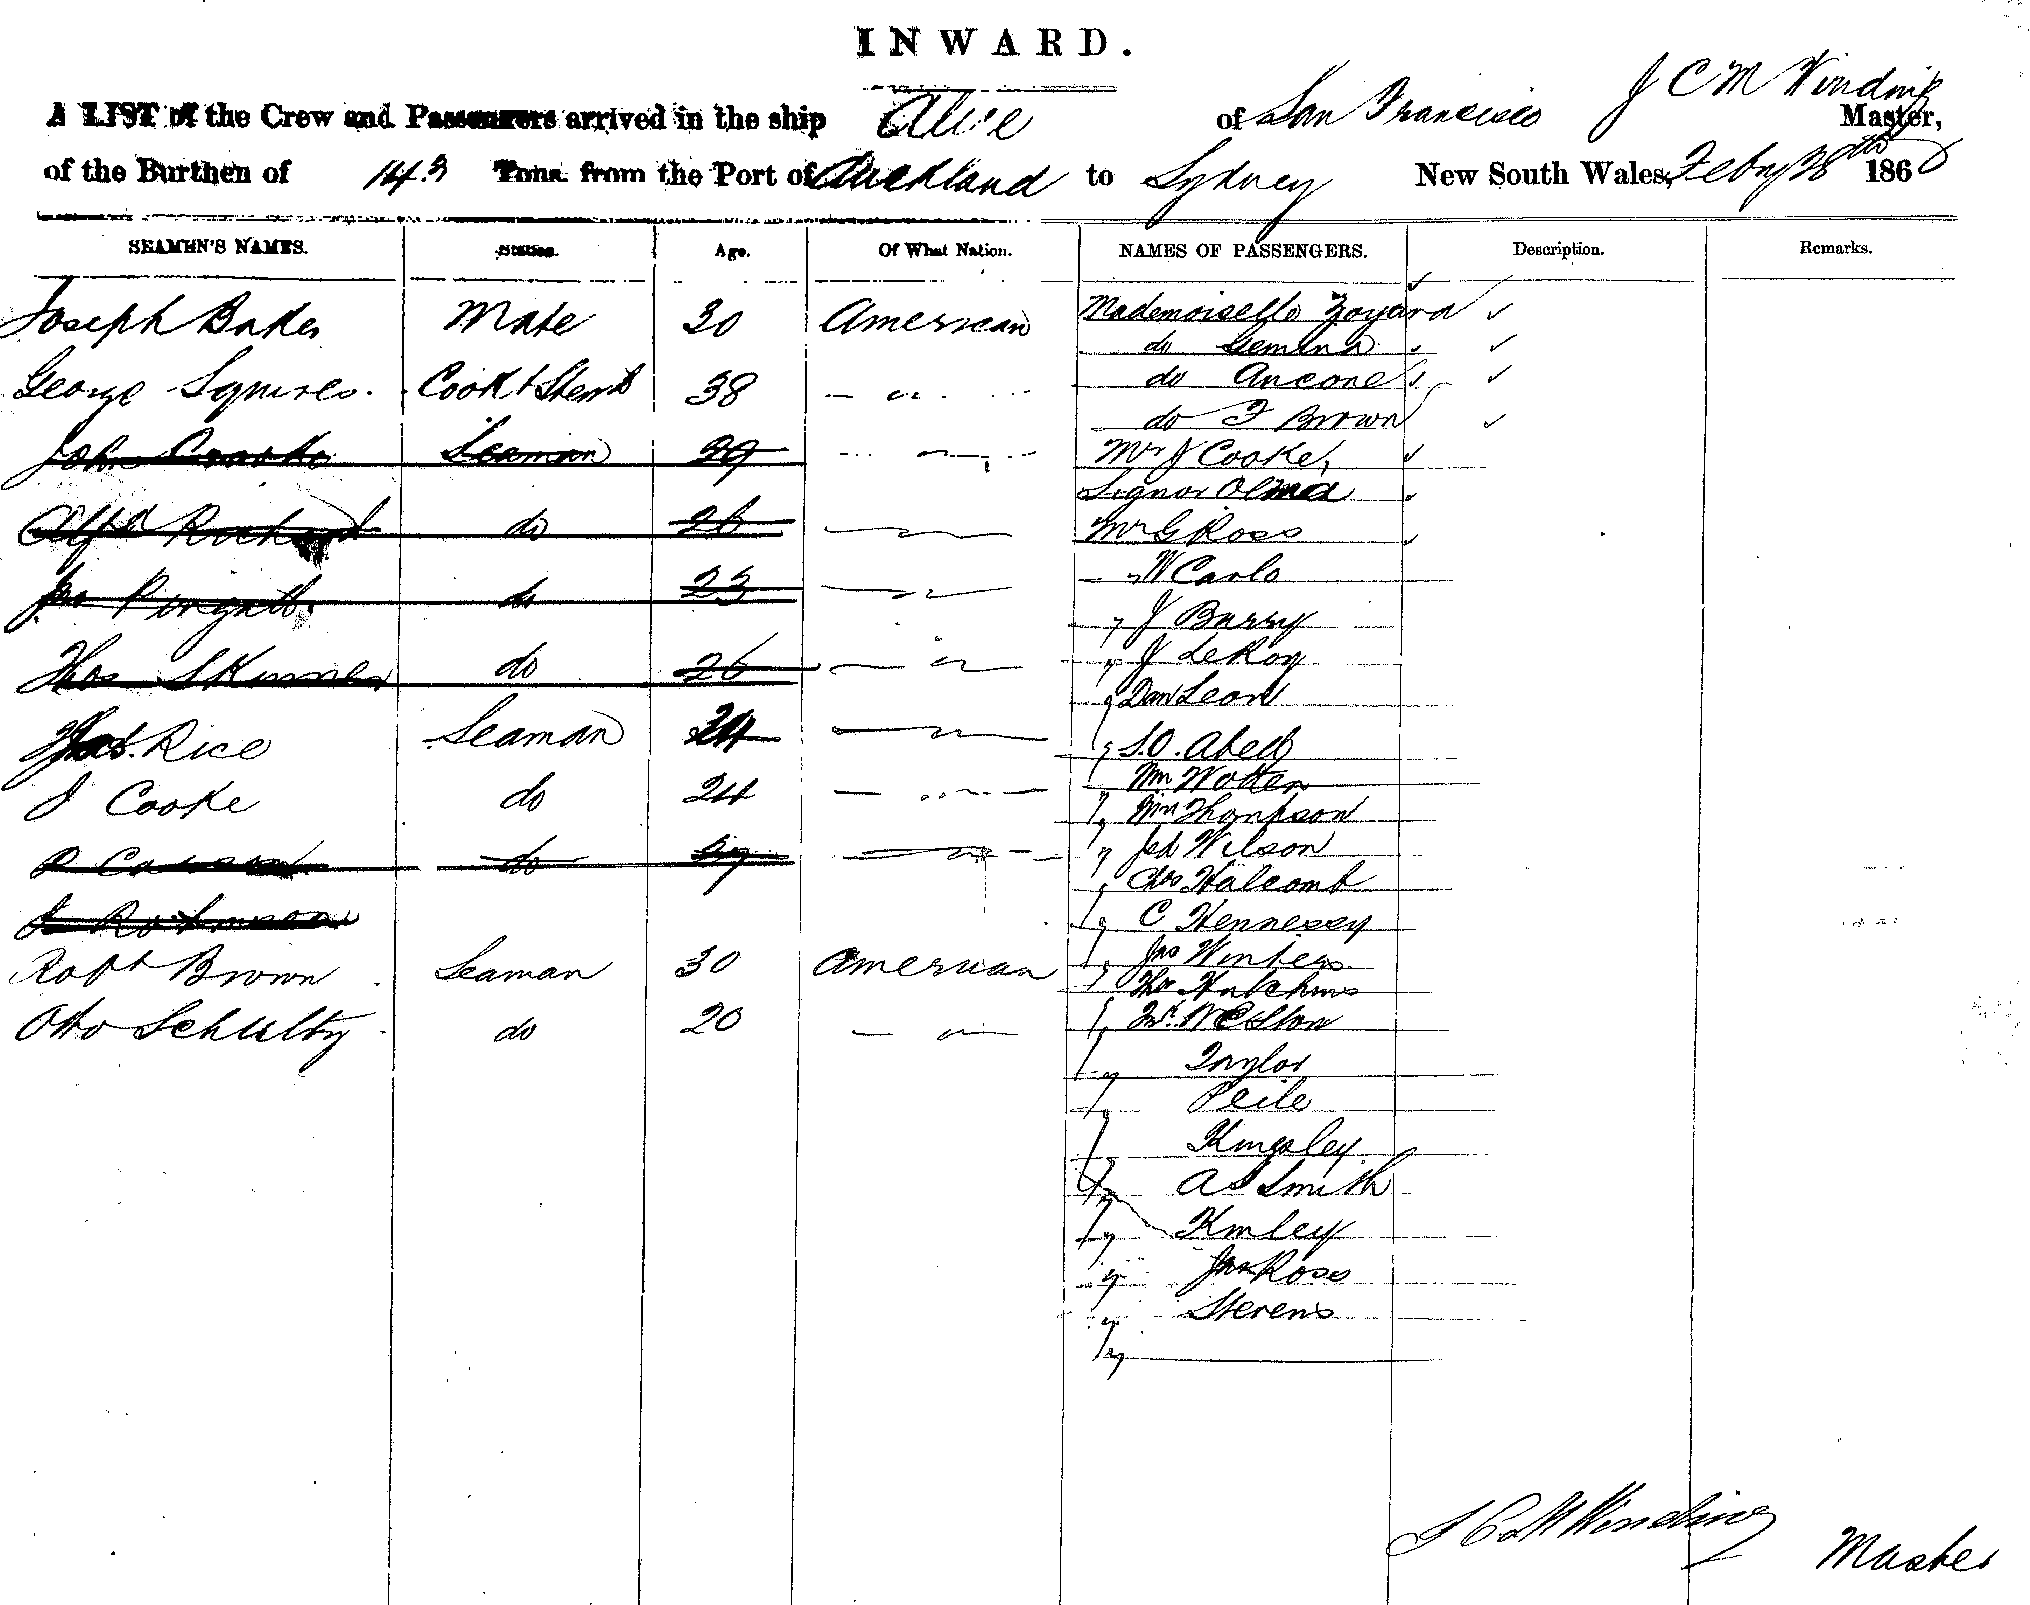 INWARD.
A LIST of the Crew and Passengers arrived in the ship Alice of San Francisco J C M Winding Master,
of the Burthen of 143 Tons from the Port of Auckland to Sydney New South Wales, Feby 28th 1866
SEAMEN'S NAMES. Station. Age. Of What Nation. NAMES OF PASSENGERS. Description. Remarks.
Joseph Baker Mate 30 American Mademoiselle Zoyara
do Gemina
George Squires. Cook & Stewd 38 - do - do Ancone
do F Brown
Seaman 29 - do - Mr J Cooke,
Signor Olma
Alfd do 26 - do - Mr G Ross
Jas do 23 - do - " W Carlo
" J Barry
Thos Skinner do 26 - do - " J LeRoy
" Dan Leon
Rice Seaman 24 - do - " S.O. Abell
J Cooke do 24 - do - Wm Wotten
" Wm Thompson
do 27 - do - " Jed Wilson
" Chas Halcomb
J Robinson " C Hennessy
Robt Brown Seaman 30 American " Jas Winters
Thos Hutchins
Otto Schultz do 20 - do - " Weston
" Taylor
" Peile
Kingsley
" A S Smith
" Kmley
" Jas Ross
" Stevens
"
J C M Winding Master